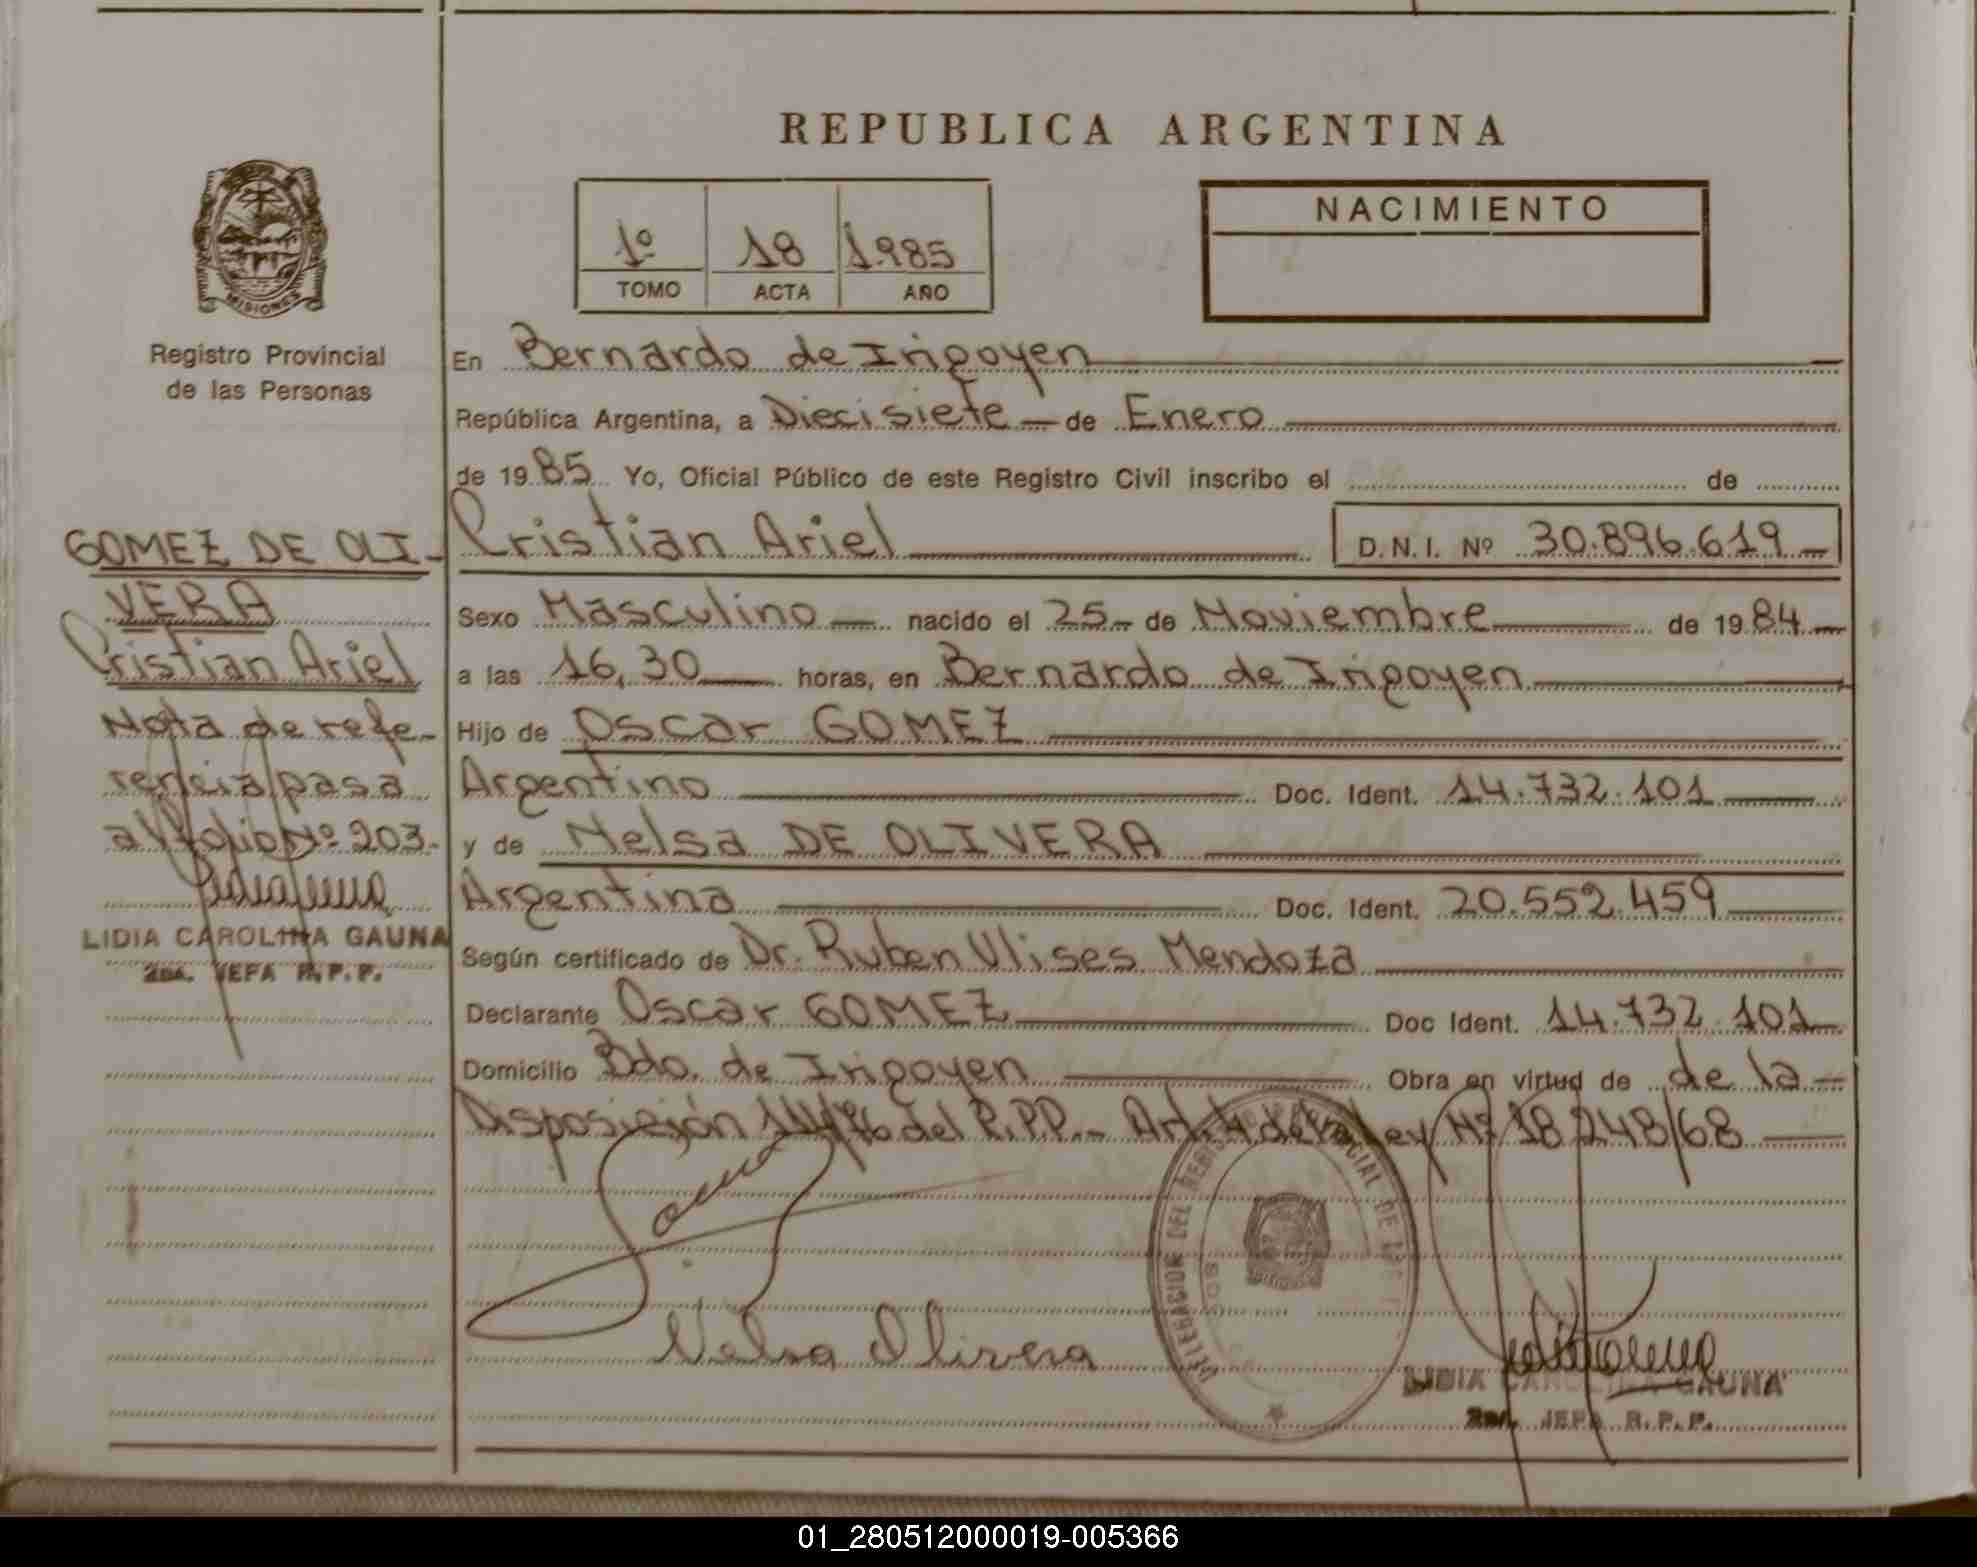 REPUBLICA ARGENTINA
1º 18 1.985
TOMO ACTA AÑO
NACIMIENTO
MISIONES
Registro Provincial
de las Personas
GOMEZ DE OLI-
VERA
Cristian Ariel
Nota de refe-
rencia pasa
al folio Nº 203.
LIDIA CAROLINA GAUNA
2da. JEFA R.P.P.
En Bernardo de Irigoyen
República Argentina, a Diecisiete de Enero
de 1985 Yo, Oficial Público de este Registro Civil inscribo el de
Cristian Ariel D.N.I. Nº 30.896.619
Sexo Masculino nacido el 25 de Noviembre de 1984
a las 16,30 horas, en Bernardo de Irigoyen
Hijo de Oscar GOMEZ
Argentino Doc. Ident. 14.732.101
y de Nelsa DE OLIVERA
Argentina Doc. Ident. 20.552.459
Según certificado de Dr. Ruben Ulises Mendoza
Declarante Oscar GOMEZ Doc Ident. 14.732.101
Domicilio Bdo. de Irigoyen Obra en virtud de de la
Disposición del R.P.P.- Art. 4 de la Ley Nº 18.248/68
DELEGACION DEL REGISTRO PROVINCIAL DE
Nelsa Olivera
LIDIA CAROLINA GAUNA
2da. JEFA R.P.P.
01_280512000019-005366